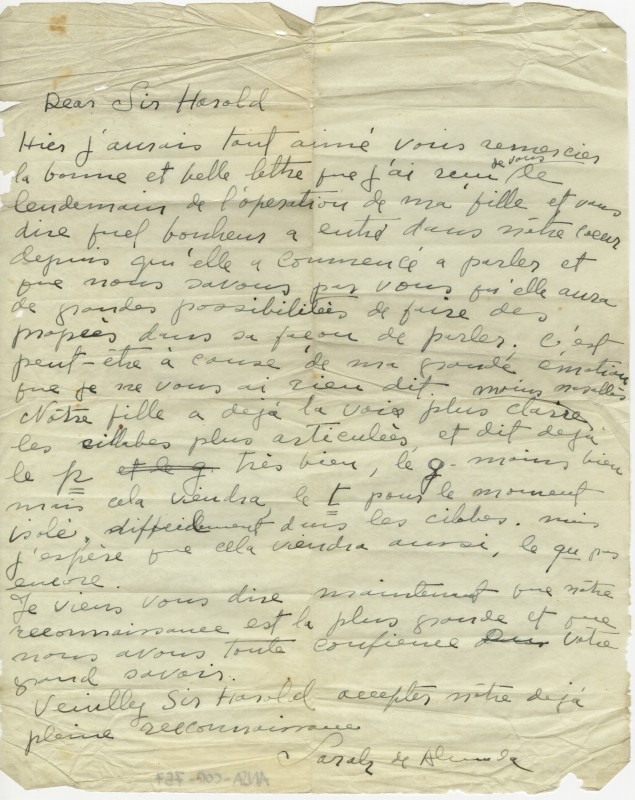 Dear Sir Harold
Hier j'aurais tant aimé vous remercier
la bonne et belle lettre que j'ai reçu de vous le
lendemain de l'operation de ma fille et vous
dire quel bonheur a entré dans nôtre coeur
depuis qu'elle a commencé a parler et
que nous savons par vous qu'elle aura
de grandes possibilitiès de faire des
progrès dans sa façon de parler. C'est
peut-etre à cause de ma grande émotion
que je ne vous ai rien dit.
Notre fille a dejà la voix plus claire, moins nasallès
les cilabes plus articulées, et dit dejà
le p et le g très bien, le g moins bien
mais cela viendra, le t pour le moment
isolé, difficilement dans les cilabes. mais
j'espère que cela viendra aussi, le qu pas
encore.
Je viens vous dire maintenant que nôtre
reconnaissance est la plus grande et que
nous avons toute confience dans votre
grand savoir.
Veuilley Sir Harold accepter nôtre dejà
pleine reconnaissance
Sarah de Almeida